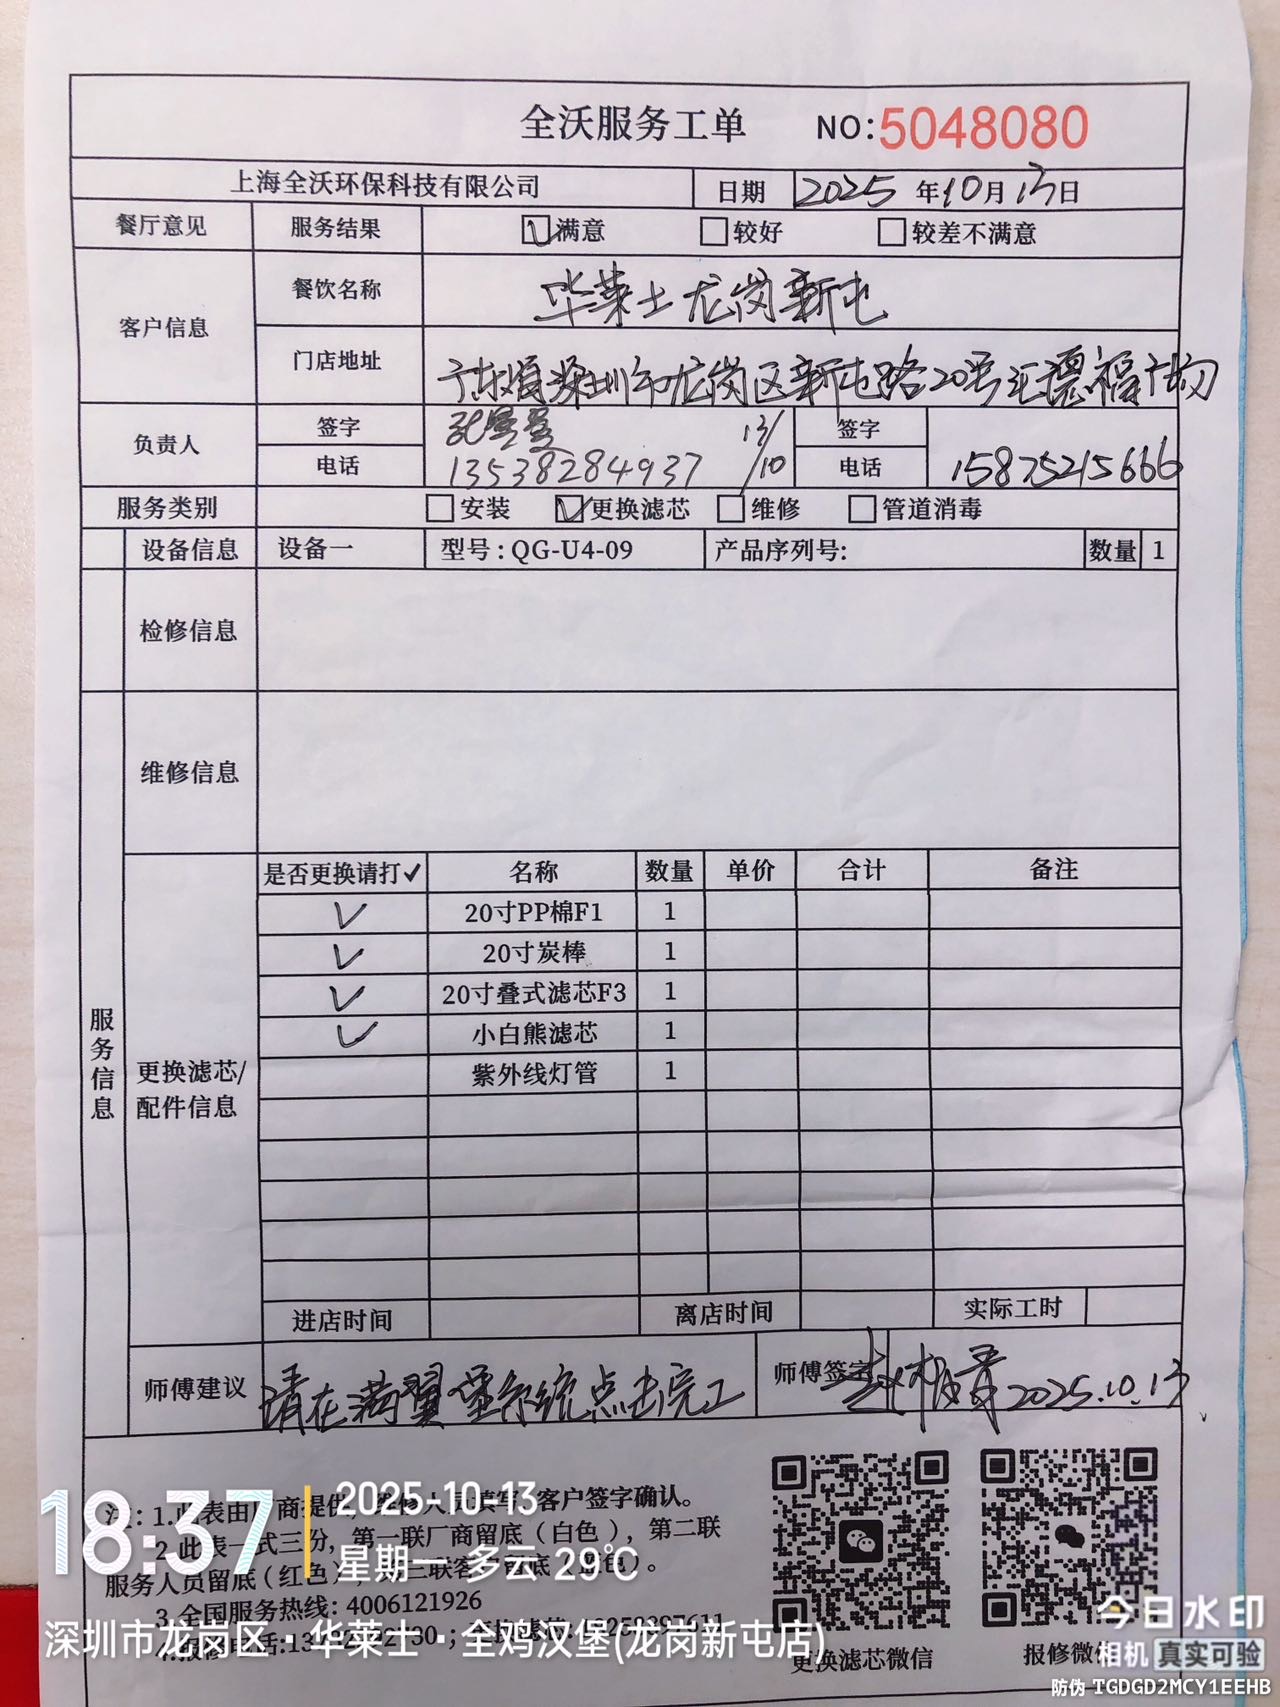 全沃服务工单 NO:5048080
上海全沃环保科技有限公司 日期 2025 年10月13日
餐厅意见 服务结果 满意 较好 较差不满意
客户信息 餐饮名称 华莱士龙岗新屯
门店地址 广东省深圳市龙岗区新屯路20号汇德福广场
负责人 签字 13/10 签字
电话 13538284937 电话 15875215666
服务类别 安装 更换滤芯 维修 管道消毒
设备信息 设备一 型号:QG-U4-09 产品序列号: 数量 1
检修信息
维修信息
服务信息
更换滤芯/
配件信息
是否更换请打✓ 名称 数量 单价 合计 备注
✓ 20寸PP棉F1 1
✓ 20寸炭棒 1
✓ 20寸叠式滤芯F3 1
✓ 小白熊滤芯 1
紫外线灯管 1
进店时间 离店时间 实际工时
师傅建议 请在 点击完工 师傅签字 2025.10.13
注:1.此表由厂商提供, 客户签字确认。
2.此表一式三份,第一联厂商留底(白色),第二联
服务人员留底(红色),第三联客户留底
3.全国服务热线:4006121926
4.报修电话:
更换滤芯微信 报修微信
18:37
2025-10-13
星期一 多云 29℃
深圳市龙岗区·华莱士·全鸡汉堡(龙岗新屯店)
今日水印
相机 真实可验
防伪 TGDGD2MCY1EEHB